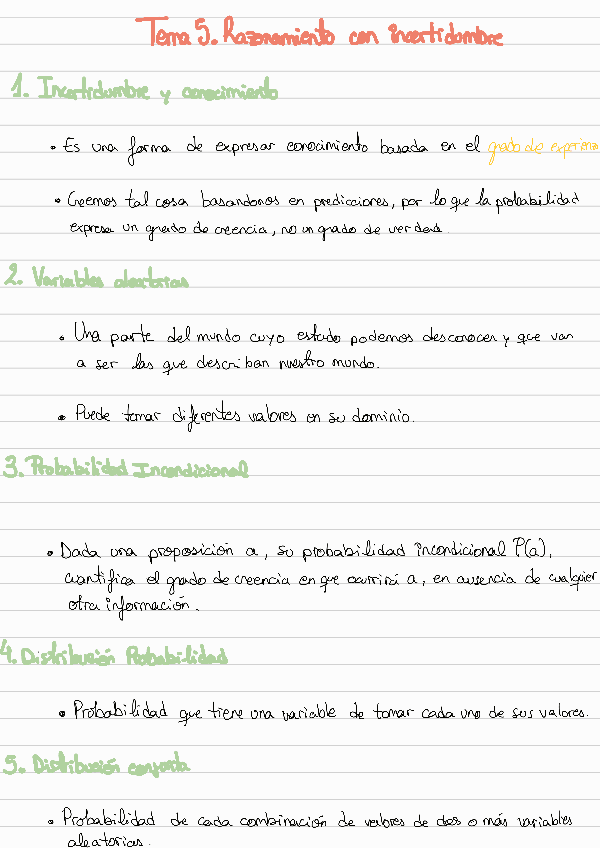 Tema 5. Razonamiento con incertidumbre
1. Incertidumbre y conocimiento
• Es una forma de expresar conocimiento basada en el grado de experiena
• Creemos tal cosa basandonos en predicciones, por lo que la probabilidad
expresa un grado de creencia, no un grado de verdad.
2. Variables aleatorias
• Una parte del mundo cuyo estado podemos desconocer y que van
a ser las que describan nuestro mundo.
• Puede tomar diferentes valores en su dominio.
3. Probabilidad Incondicional
• Dada una proposición a, su probabilidad incondicional P(a),
cuantifica el grado de creencia en que ocurrirá a, en ausencia de cualquier
otra información.
4. Distribución Probabilidad
• Probabilidad que tiene una variable de tomar cada uno de sus valores.
5. Distribución conjunta
• Probabilidad de cada combinación de valores de dos o más variables
aleatorias.